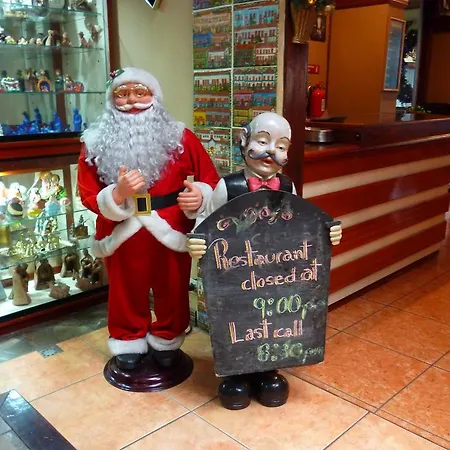 Restaurant
closed at
9:00 pm
Last call
8:30 pm